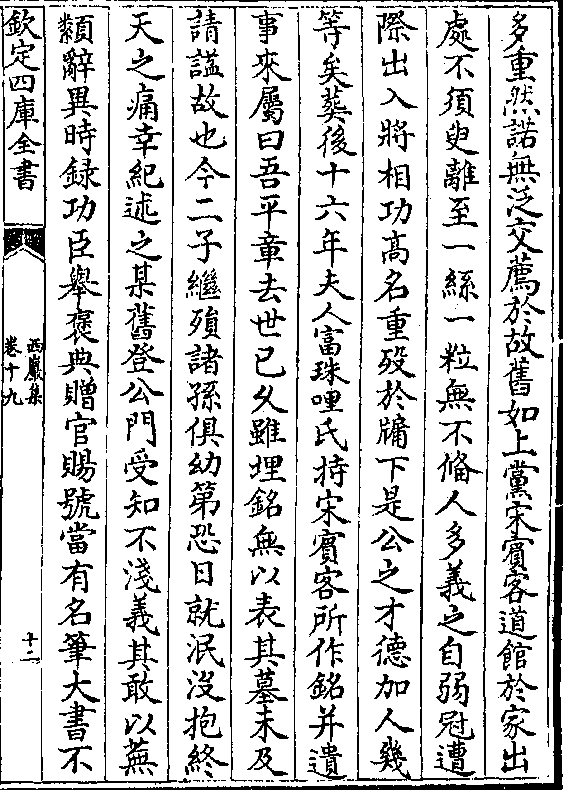 多重然諾無泛交薦於故舊如上黨宋賓客道館於家出
處不須臾離至一絲一粒無不備人多義之自弱冠遭
際出入將相功髙名重殁於牖下是公之才德加人幾
等矣葬後十六年夫人富珠哩氏持宋賓客所作銘并遺
事來屬曰吾平章去世已乆雖埋銘無以表其墓未及
請諡故也今二子繼殞諸孫俱幼第恐日就泯没抱終
天之痛幸紀述之某舊登公門受知不淺義其敢以蕪
纇辭異時録功臣舉褒典贈官賜號當有名筆大書不
欽定四庫全書
西巖集
卷十九
十二